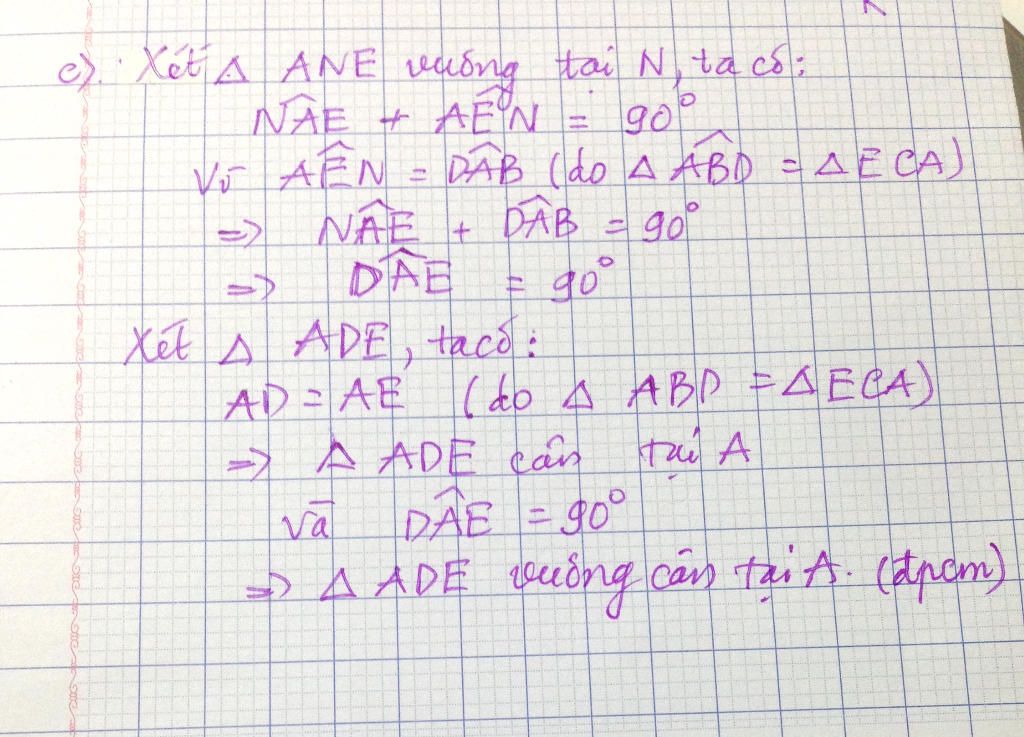 c). Xét Δ ANE vuông tại N, ta có:
NÂE + AÊN = 90°
Vì AÊN = DÂB (do Δ ABD = Δ ECA)
=> NÂE + DÂB = 90°
=> DÂE = 90°
Xét Δ ADE, ta có:
AD = AE (do Δ ABD = Δ ECA)
=> Δ ADE cân tại A
và DÂE = 90°
=> Δ ADE vuông cân tại A. (đpcm)